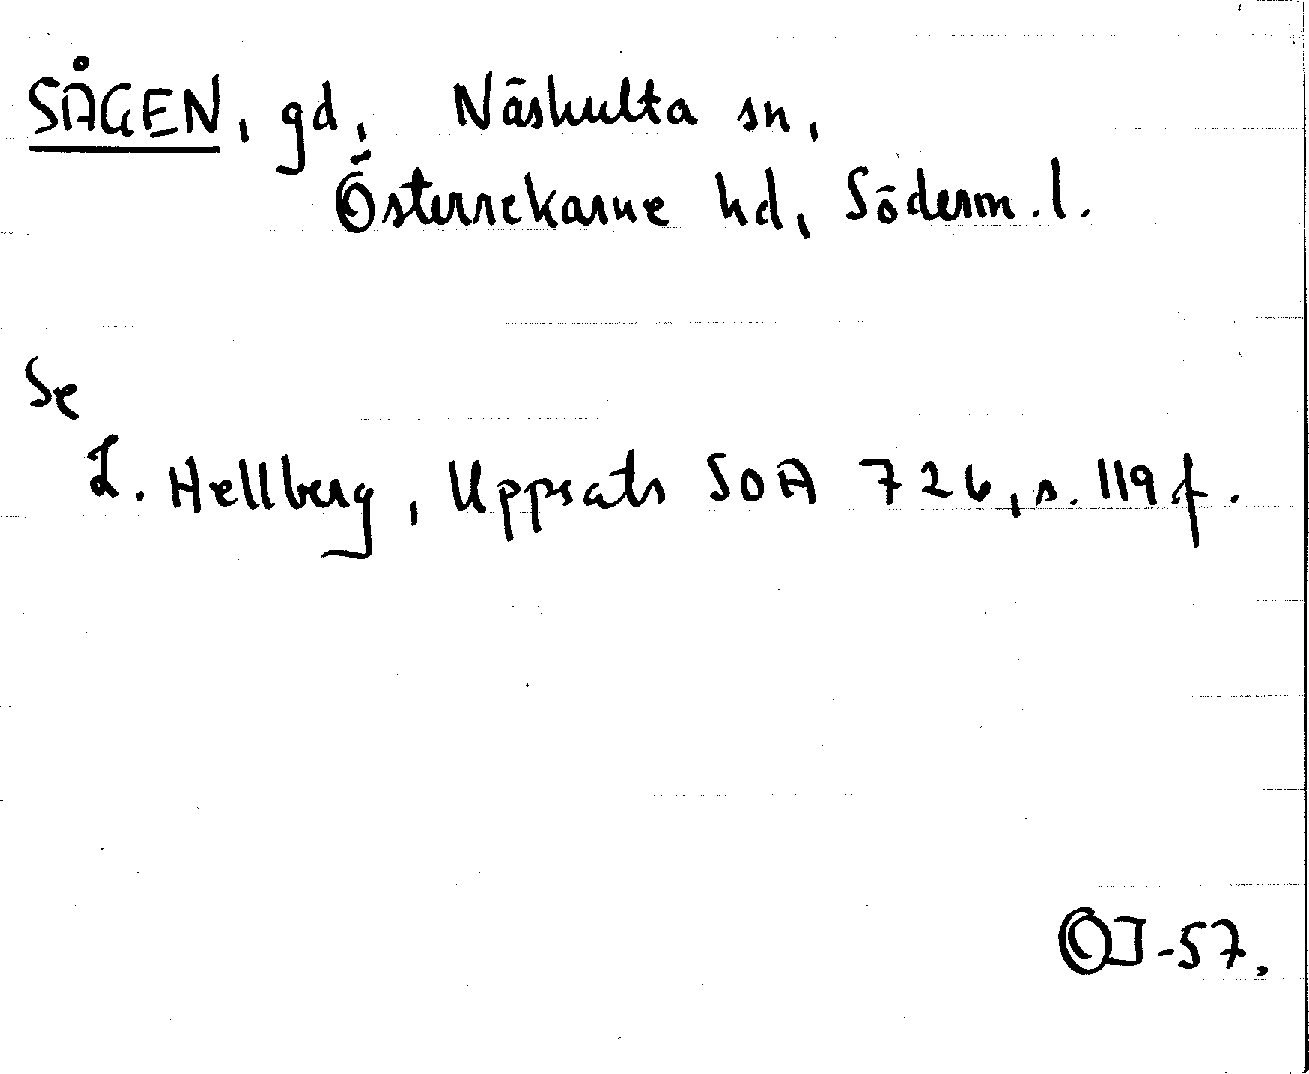 SÅGEN, gd, Näshulta sn,
Österrekarne hd, Söderm. l.
Se
L. Hellberg, Uppsats SOA 726, s. 119 f.
OJ-57.